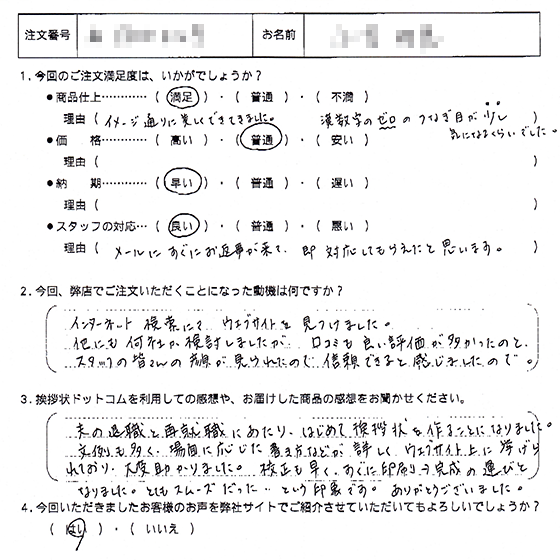 注文番号 お名前
1.今回のご注文満足度は、いかがでしょうか?
●商品仕上…………( 満足 )・( 普通 )・( 不満 )
理由( イメージ通りに美しくできてきました。 漢数字のゼロのつなぎ目が少し )
気になるくらいでした。
●価 格…………( 高い )・( 普通 )・( 安い )
理由( )
●納 期…………( 早い )・( 普通 )・( 遅い )
理由( )
●スタッフの対応…( 良い )・( 普通 )・( 悪い )
理由( メールにすぐにお返事が来て、即対応してもらえたと思います。 )
2.今回、弊店でご注文いただくことになった動機は何ですか?
インターネット検索にて ウェブサイトを見つけました。
他にも何社か検討しましたが、口コミも良い評価が多かったのと、
スタッフの皆さんの顔が見られたので信頼できると感じましたので。
3.挨拶状ドットコムを利用しての感想や、お届けした商品の感想をお聞かせください。
夫の退職と再就職にあたり、はじめて挨拶状を作ることになりました。
文例も多く、場面に応じた書き方などが詳しくウェブサイト上に挙げら
れており、大変助かりました。校正も早く、すぐに印刷→完成の運びと
なりました。とてもスムーズだった…という印象です。ありがとうございました。
4.今回いただきましたお客様のお声を弊社サイトでご紹介させていただいてもよろしいでしょうか?
( はい )・( いいえ )